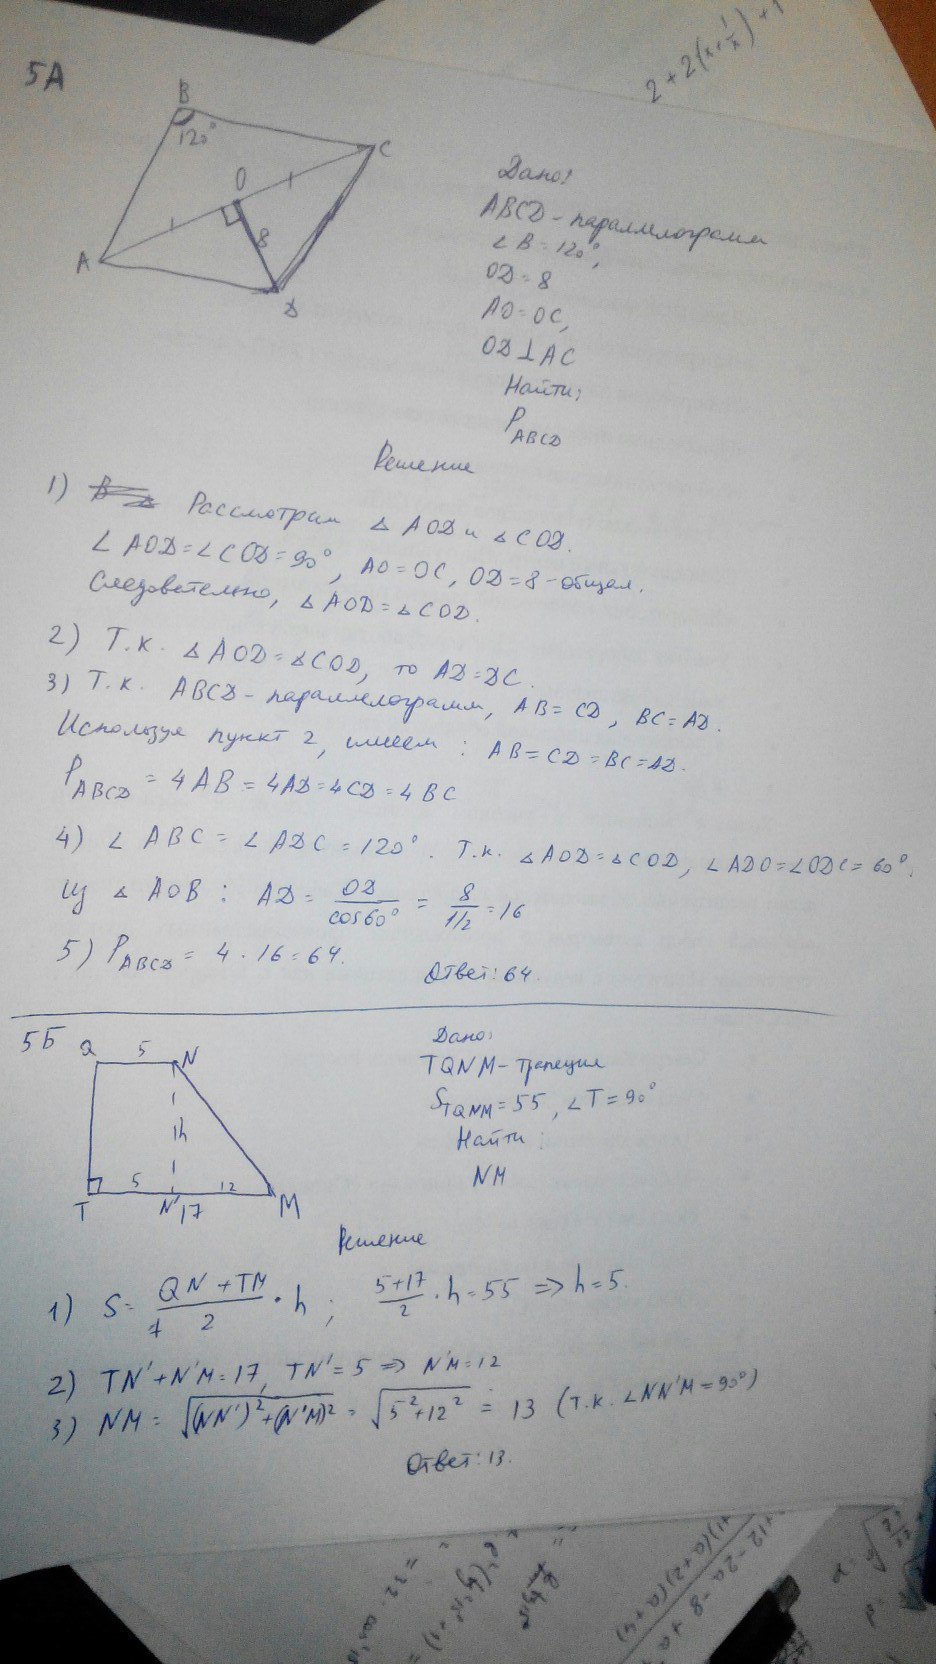 2 + 2(x + 1/x) + 1
5А
B
120°
C
O
8
A
D
Дано:
ABCD - параллелограмм
∠B = 120°,
OD = 8
AO = OC,
OD ⊥ AC
Найти:
P ABCD
Решение
1) Рассмотрим △ AOD и △ COD.
∠ AOD = ∠ COD = 90°, AO = OC, OD = 8 - общая.
Следовательно, △ AOD = △ COD.
2) Т.к. △ AOD = △ COD, то AD = DC.
3) Т.к. ABCD - параллелограмм, AB = CD, BC = AD.
Используя пункт 2, имеем: AB = CD = BC = AD.
P ABCD = 4AB = 4AD = 4CD = 4BC
4) ∠ ABC = ∠ ADC = 120°. Т.к. △ AOD = △ COD, ∠ ADO = ∠ ODC = 60°.
Из △ AOB: AD = OD/cos60° = 8/1/2 = 16
5) P ABCD = 4 · 16 = 64.
Ответ: 64.
5Б
Q 5 N
h
5 12
T N' 17 M
Дано:
TQNM - трапеция
S TQNM = 55, ∠T = 90°
Найти:
NM
Решение
1) S = (QN + TM)/2 · h; (5+17)/2 · h = 55 => h = 5.
2) TN' + N'M = 17, TN' = 5 => N'M = 12
3) NM = √((NN')² + (N'M)²) = √(5² + 12²) = 13 (т.к. ∠NN'M = 90°)
Ответ: 13.